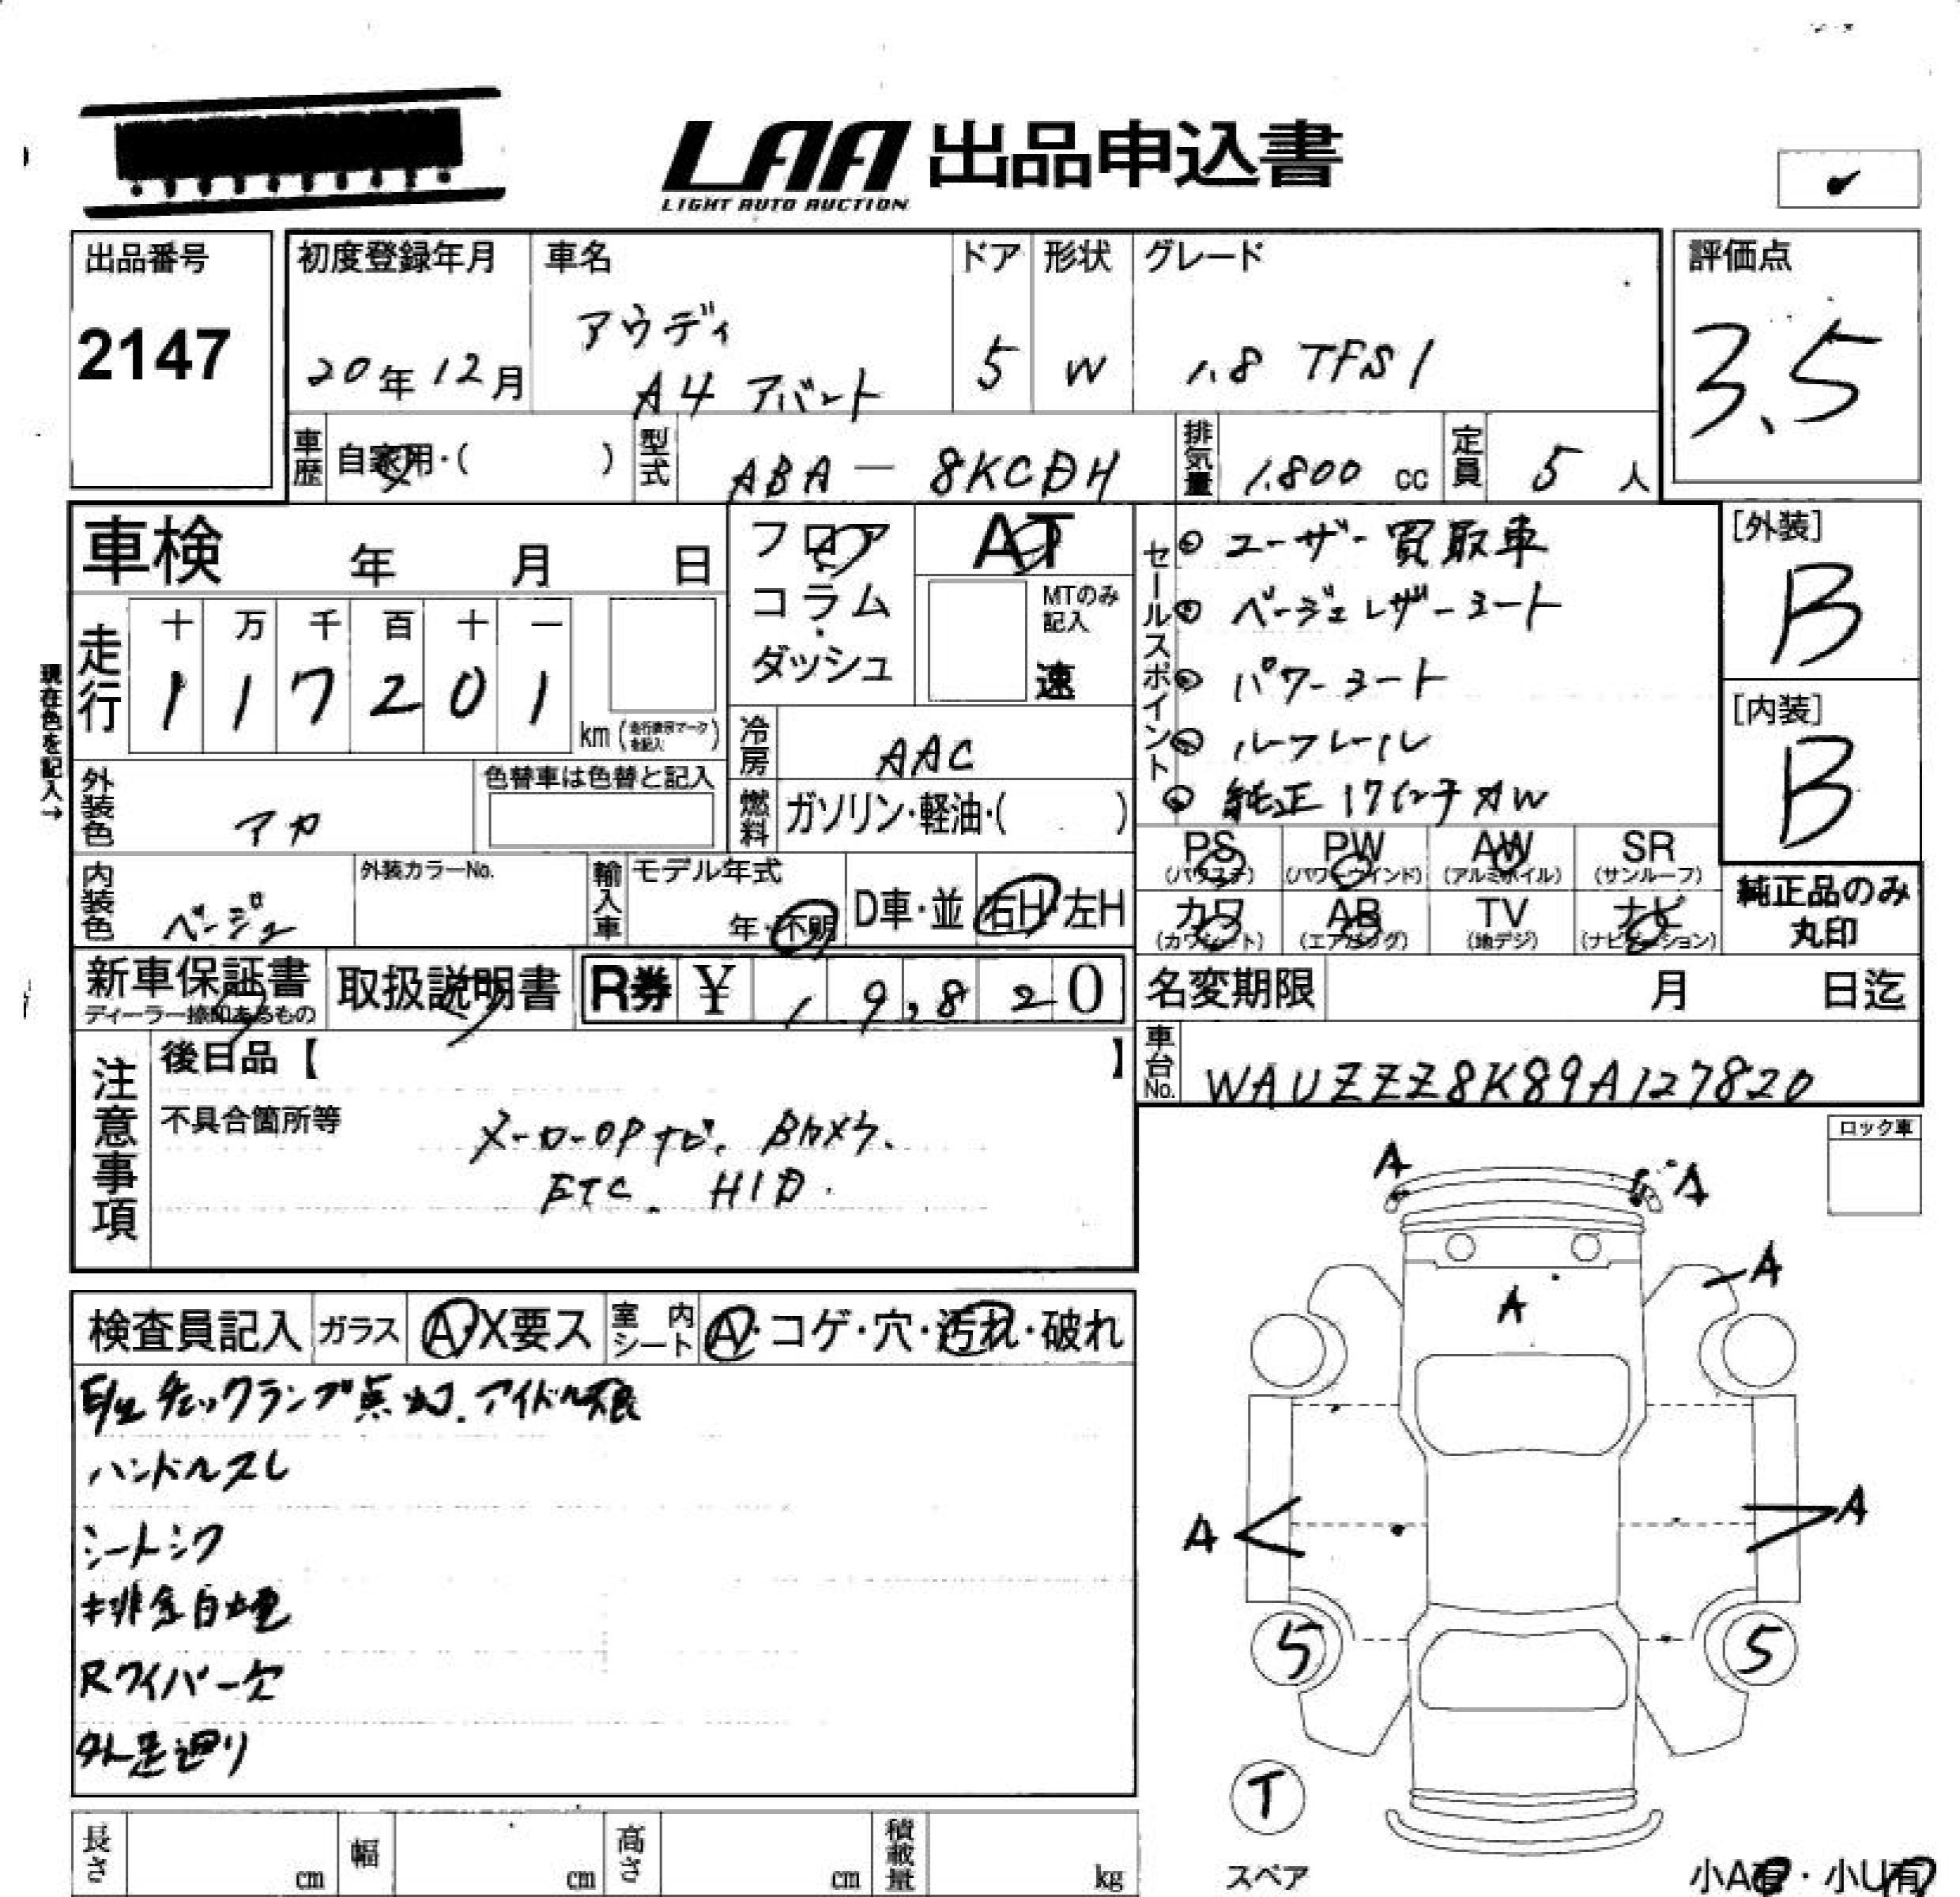 LAA 出品申込書
LIGHT AUTO AUCTION
出品番号
2147
初度登録年月
20年12月
車名
アウディ
A4 アバント
ドア
5
形状
W
グレード
1.8 TFSI
評価点
3.5
車歴
自家用・( )
型式
ABA-8KCDH
排気量
1,800 cc
定員
5 人
車検 年 月 日
フロア・コラム・ダッシュ
AT
MTのみ記入
速
セールスポイント
ユーザー買取車
ベージュレザーシート
パワーシート
ルーフレール
純正17インチAW
[外装]
B
[内装]
B
現在色を記入→
走行
十 万 千 百 十 一
1 1 7 2 0 1
km (走行表示マークを記入)
冷房
AAC
外装色
アカ
色替車は色替と記入
燃料
ガソリン・軽油・( )
PS (パワステ)
PW (パワーウインド)
AW (アルミホイル)
SR (サンルーフ)
カワ (カワシート)
AB (エアバッグ)
TV (地デジ)
ナビ (ナビゲーション)
純正品のみ丸印
内装色
ベージュ
外装カラーNo.
輸入車
モデル年式
年・不明
D車・並
右H・左H
新車保証書
ディーラー捺印あるもの
取扱説明書
R券 ¥ 1 9,8 2 0
名変期限 月 日迄
車台No.
WAUZZZ8K89A127820
注意事項
後日品【 】
不具合箇所等
メーカーOPナビ. Bカメラ.
ETC. HID.
ロック車
検査員記入
ガラス
A・X要ス
室内シート
A・コゲ・穴・汚れ・破れ
E/gチェックランプ点灯.アイドル不良
ハンドルスレ
シートシワ
排気白煙
Rワイパー欠
外足廻り
A
A
A
A
A
A
5
5
T
スペア
小A有・小U有
長さ cm
幅 cm
高さ cm
積載量 kg